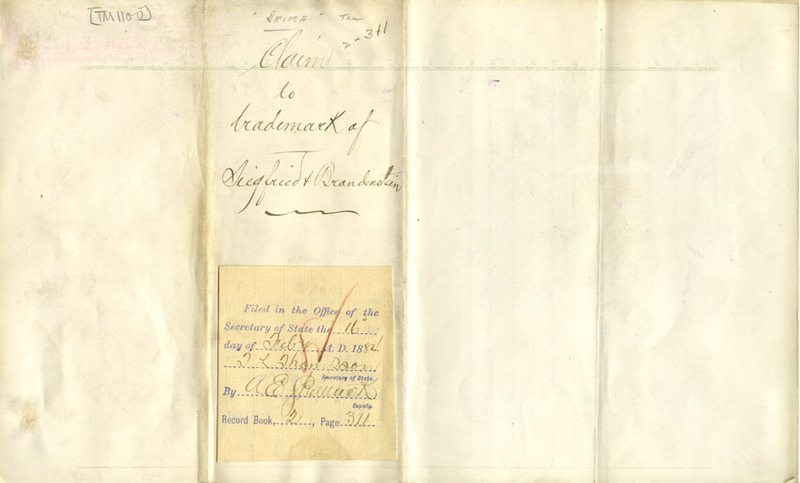 [TM1100]
"AROMA" Tea
2-311
Claim
to
trademark of
Siegfried & Brandenstein
Filed in the Office of the
Secretary of State the 16
day of Feby A. D. 1884
T L Thompson
Secretary of State.
By A E
Deputy.
Record Book, 2, Page 311